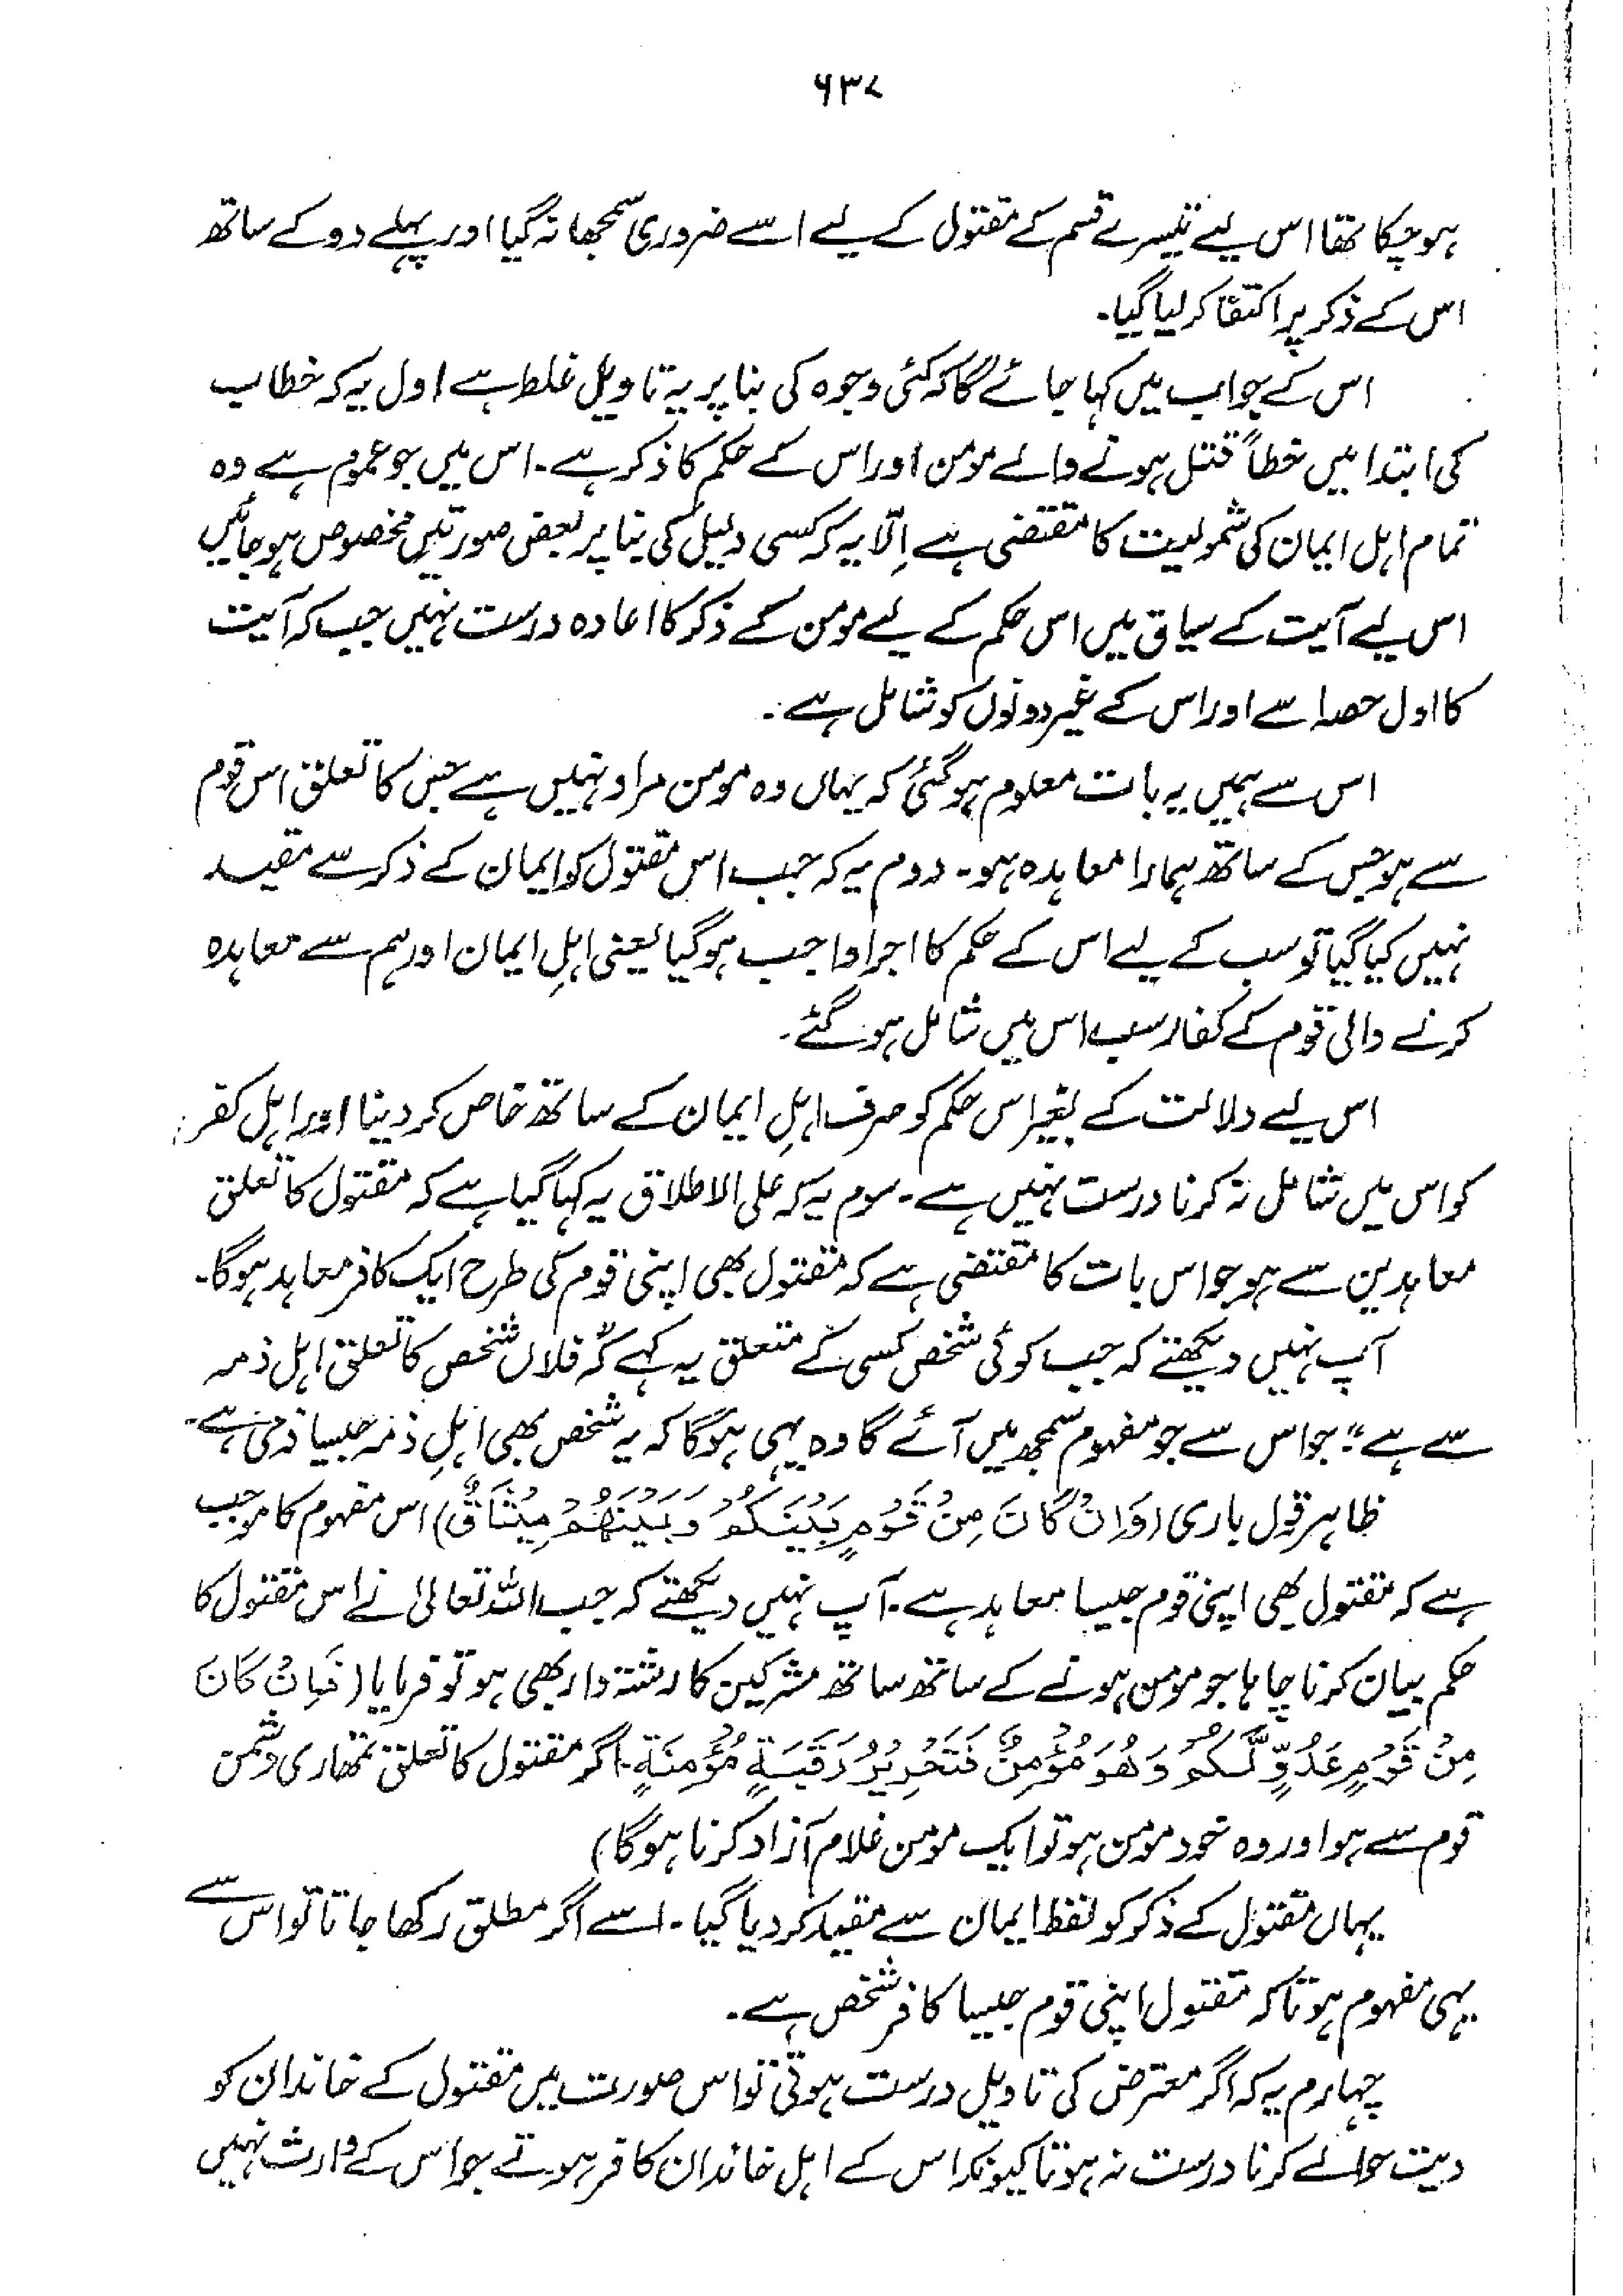 ۶۳۷
ہو چکا تھا اس لیے تیسرے قسم کے مقتول کے لیے اسے ضروری سمجھا نہ گیا اور پہلے دو کے ساتھ
اس کے ذکر پر اکتفا کر لیا گیا۔
اس کے جواب میں کہا جائے گا کہ کئی وجوہ کی بنا پر یہ تاویل غلط ہے اول یہ کہ خطاب
کی ابتدا میں خطاً قتل ہونے والے مومن اور اس کے حکم کا ذکر ہے۔ اس میں جو عموم ہے وہ
تمام اہل ایمان کی شمولیت کا مقتضی ہے اِلّا یہ کہ کسی دلیل کی بنا پر بعض صورتیں مخصوص ہو جائیں
اس لیے آیت کے سیاق میں اس حکم کے لیے مومن کے ذکر کا اعادہ درست نہیں جب کہ آیت
کا اول حصہ اسے اور اس کے غیر دونوں کو شامل ہے۔
اس سے ہمیں یہ بات معلوم ہو گئی کہ یہاں وہ مومن مراد نہیں ہے جس کا تعلق اس قوم
سے ہو جس کے ساتھ ہمارا معاہدہ ہو۔ دوم یہ کہ جب اس مقتول کو ایمان کے ذکر سے مقید
نہیں کیا گیا تو سب کے لیے اس کے حکم کا اجرا واجب ہو گیا یعنی اہلِ ایمان اور ہم سے معاہدہ
کرنے والی قوم کے کفار سب اس میں شامل ہو گئے۔
اس لیے دلالت کے بغیر اس حکم کو صرف اہلِ ایمان کے ساتھ خاص کر دینا اور اہل کفر
کو اس میں شامل نہ کرنا درست نہیں ہے۔ سوم یہ کہ علی الاطلاق یہ کہا گیا ہے کہ مقتول کا تعلق
معاہدین سے ہو جو اس بات کا مقتضی ہے کہ مقتول بھی اپنی قوم کی طرح ایک کافر معاہد ہو گا۔
آپ نہیں دیکھتے کہ جب کوئی شخص کسی کے متعلق یہ کہے کہ "فلاں شخص کا تعلق اہل ذمہ
سے ہے"؛ جو اس سے جو مفہوم سمجھ میں آئے گا وہ یہی ہو گا کہ یہ شخص بھی اہلِ ذمہ جیسا ذمی ہے۔
ظاہر قول باری (وَاِنْ كَانَ مِنْ قَوْمٍ بَيْنَكُمْ وَبَيْنَهُمْ مِيْثَاقٌ) اس مفہوم کا موجب
ہے کہ مقتول بھی اپنی قوم جیسا معاہد ہے۔ آپ نہیں دیکھتے کہ جب اللہ تعالیٰ نے اس مقتول کا
حکم بیان کرنا چاہا جو مومن ہونے کے ساتھ ساتھ مشرکین کا رشتہ دار بھی ہو تو فرمایا (فَاِنْ كَانَ
مِنْ قَوْمٍ عَدُوٍّ لَّكُمْ وَهُوَ مُؤْمِنٌ فَتَحْرِيْرُ رَقَبَةٍ مُّؤْمِنَةٍ۔ اگر مقتول کا تعلق تمھاری دشمن
قوم سے ہو اور وہ خود مومن ہو تو ایک مومن غلام آزاد کرنا ہو گا)
یہاں مقتول کے ذکر کو لفظ ایمان سے مقید کر دیا گیا۔ اسے اگر مطلق رکھا جاتا تو اس سے
یہی مفہوم ہوتا کہ مقتول اپنی قوم جیسا کافر شخص ہے۔
چہارم یہ کہ اگر معترض کی تاویل درست ہوتی تو اس صورت میں مقتول کے خاندان کو
دیت حوالے کرنا درست نہ ہوتا کیونکہ اس کے اہل خاندان کافر ہوتے جو اس کے وارث نہیں